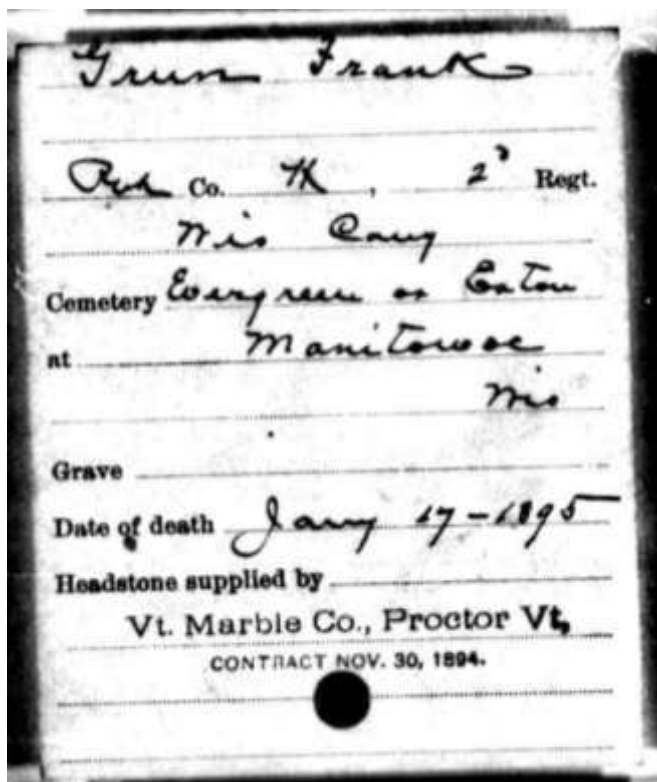 Grun Frank
Co. K, 2d Regt.
Wis Cavy
Cemetery Evergreen or Eaton
at Manitowoc
Wis
Grave
Date of death Jany 17-1895
Headstone supplied by
Vt. Marble Co., Proctor Vt,
CONTRACT NOV. 30, 1894.